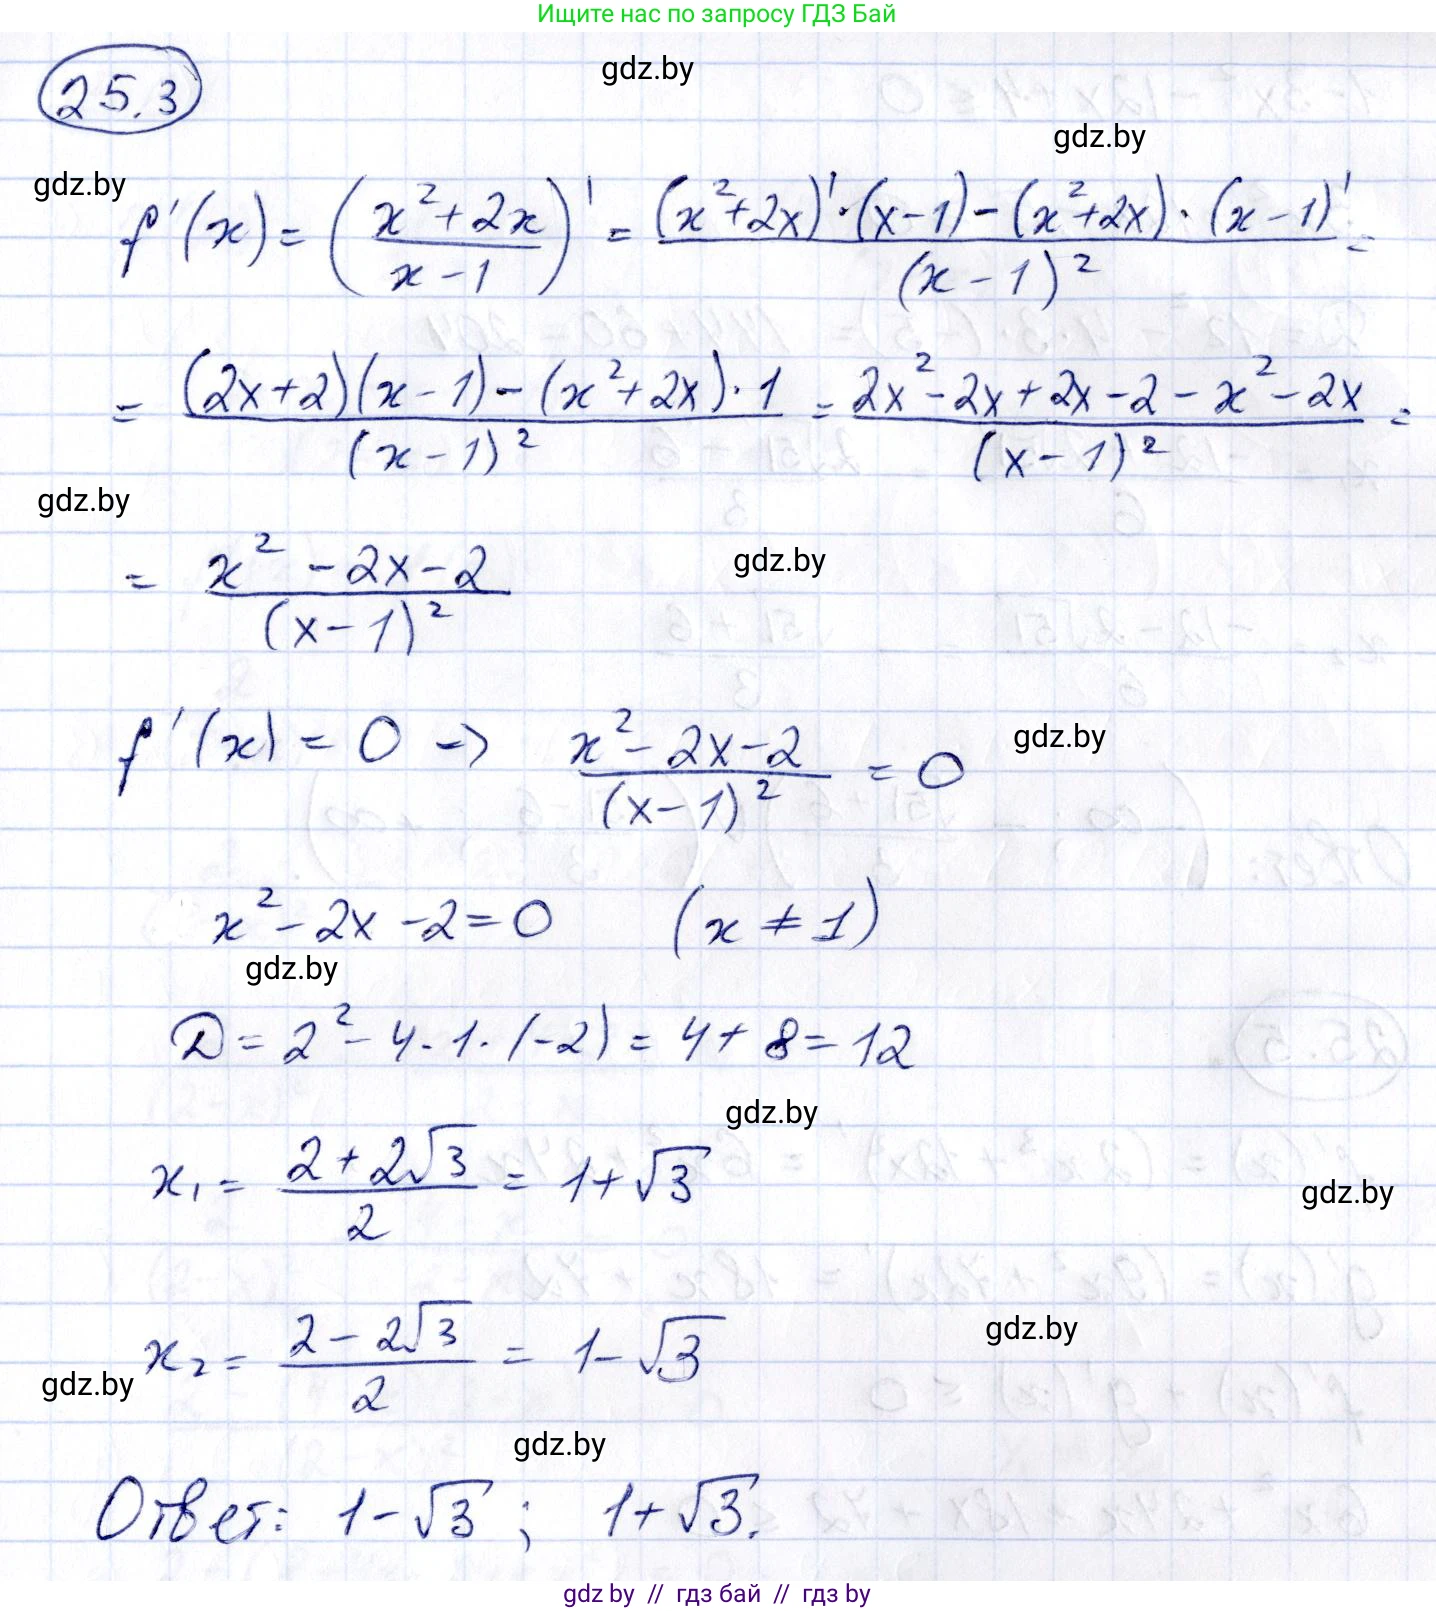 Ищите нас по запросу ГДЗ Бай
25.3
gdz.by
gdz.by
gdz.by
f'(x) = ((x² + 2x)/(x - 1))' = ((x² + 2x)' · (x - 1) - (x² + 2x) · (x - 1)')/(x - 1)² =
= ((2x + 2)(x - 1) - (x² + 2x) · 1)/(x - 1)² = (2x² - 2x + 2x - 2 - x² - 2x)/(x - 1)² =
gdz.by
= (x² - 2x - 2)/(x - 1)²
gdz.by
f'(x) = 0 -> (x² - 2x - 2)/(x - 1)² = 0
gdz.by
x² - 2x - 2 = 0 (x ≠ 1)
gdz.by
D = 2² - 4 · 1 · (-2) = 4 + 8 = 12
gdz.by
x₁ = (2 + 2√3)/2 = 1 + √3
gdz.by
x₂ = (2 - 2√3)/2 = 1 - √3
gdz.by
gdz.by
gdz.by
Ответ: 1 - √3 ; 1 + √3.
gdz by // гдз бай // гдз by